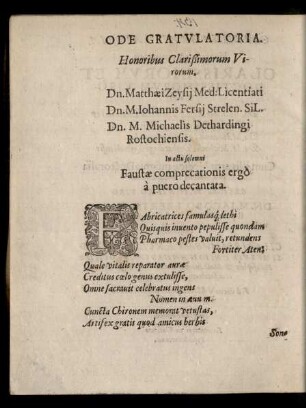 ODE GRATVLATORIA.
Honoribus Clarißimorum Vi-
rorum,
Dn. Matthæi Zeysij Med: Licentiati
Dn. M. Iohannis Fersij Strelen. SiL.
Dn. M. Michaelis Dethardingi
Rostochiensis.
In actu solenni
Faustæ comprecationis ergò
à puero decantata.
FAbricatrices famulasq́ lethi
Quisquis invento pepulisse quondam
Pharmaco pestes valuit, retundens
Fortiter
Quale vitalis reparator auræ
Creditus cœlo genus extulisse,
Omne sacravit celebratus ingens
Numen in
Cuncta Chironem memorat vetustas,
Artifex gratis quod amicus herbis
Sono